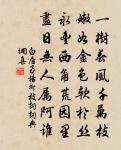 一樹春風千萬枝
嫩如金色軟於絲
永豐西角荒園里
盡日無人屬阿誰
白居易楊柳枝詞詞典
網